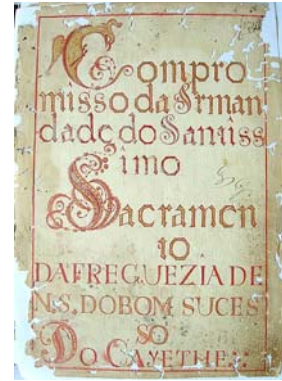 Compro
misso da Irman
dade do Santiss
imo
Sacramen
to
DA FREGUEZIA DE
N.S. DO BOM SUCES
SO
DO CAYETHE: